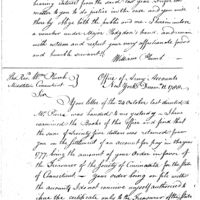 bearing interest from the said last
matter to you to do justice in the and you
thus by Mye both the public and me. I herein inclose
a voucher under Major Hodgdon's hand, and remain
with esteem and respect your very affectionate friend
and humble servant,
William Plumb
The Rev. Wm Plumb
Middleton Connecticut
Office of Army Accounts
New York Decem 12 1788
Sir
Your letter of the 24 October last directed to
Mr Pierce was handed to me yesterday. I have
examined the Books of this office and find that
the sum of Twenty five dollars was returned from
you on the settlement of an account for pay in
1777, being the amount of your Order in favor of
the Treasurer of the County of for the State
of Connecticut — your order being on file with
the accounts I do not conceive myself authorised to
issue the certificate only to the Treasurer of the State